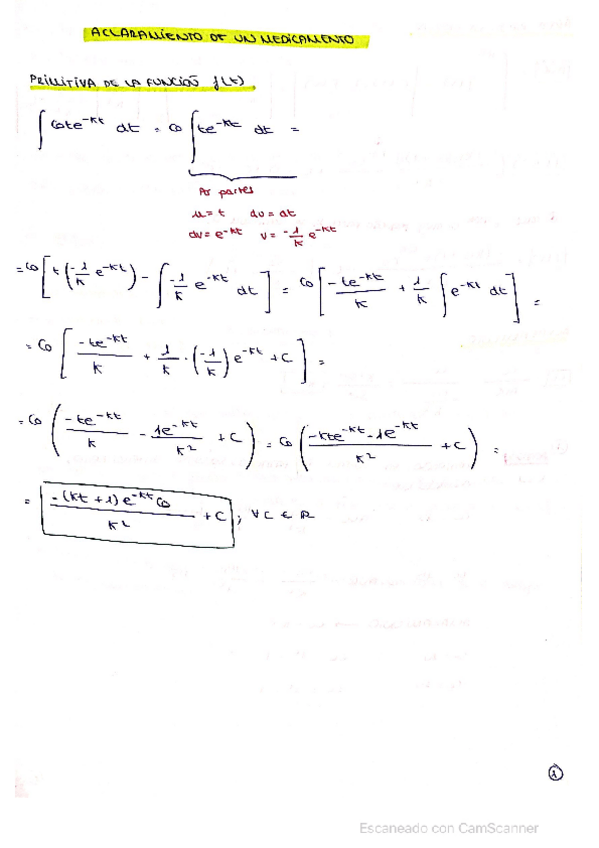 ACLARAMIENTO DE UN MEDICAMENTO
PRIMITIVA DE LA FUNCIÓN f(t)
∫ C₀te^-kt dt = C₀ ∫ te^-kt dt =
Por partes
u = t du = dt
dv = e^-kt v = -1/k e^-kt
= C₀ [ t (-1/k e^-kt) - ∫ -1/k e^-kt dt ] = C₀ [ -te^-kt/k + 1/k ∫ e^-kt dt ] =
= C₀ [ -te^-kt/k + 1/k · (-1/k) e^-kt + C ] =
= C₀ ( -te^-kt/k - 1e^-kt/k² + C ) = C₀ ( -kte^-kt - 1e^-kt/k² + C ) =
= -(kt + 1) e^-kt C₀/k² + C ; ∀ C ∈ R
1
Escaneado con CamScanner